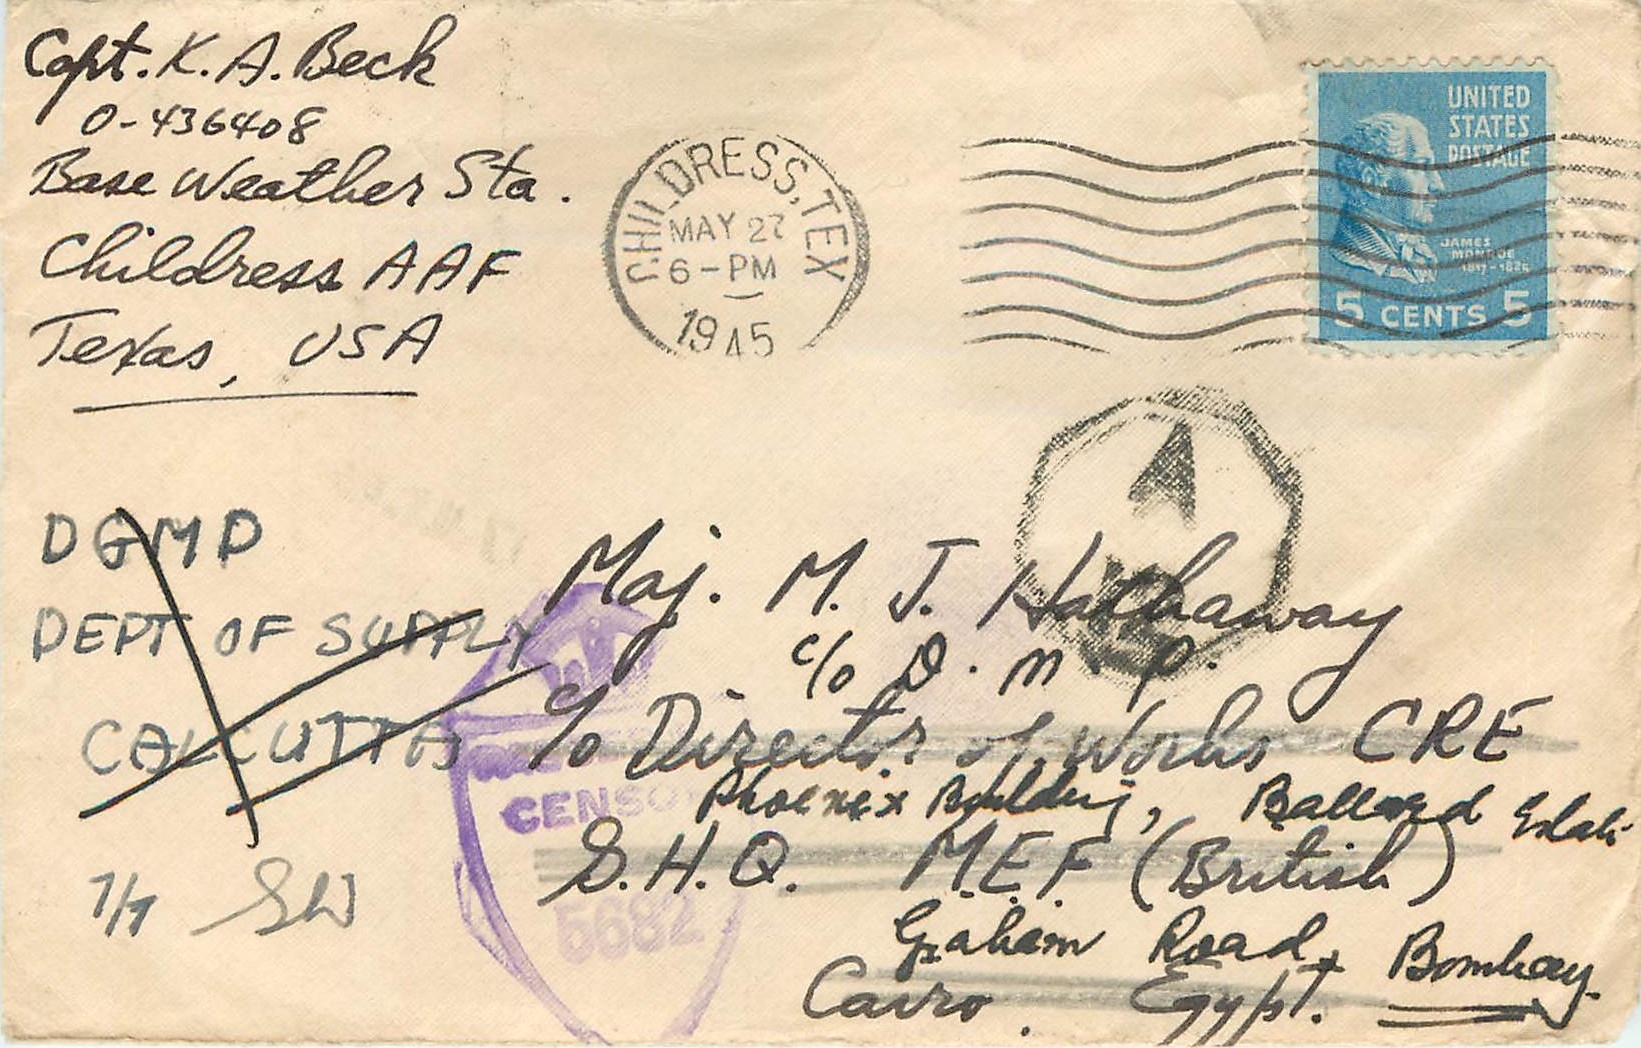 Capt. K. A. Beck
O-436408
Base Weather Sta.
Childress AAF
Texas, USA
CHILDRESS, TEX
MAY 27
6-PM
1945
UNITED
STATES
POSTAGE
JAMES
MONROE
1817-1825
5 CENTS 5
A
DGMP
DEPT OF SUPPLY
CALCUTTA
7/7
Maj. M. J. Hathaway
c/o D. M. P.
c/o Director of Works CRE
Phoenix Building, Ballard Estate
G.H.Q. M.E.F (British)
Graham Road, Bombay.
Cairo. Egypt.
CENSOR
5682